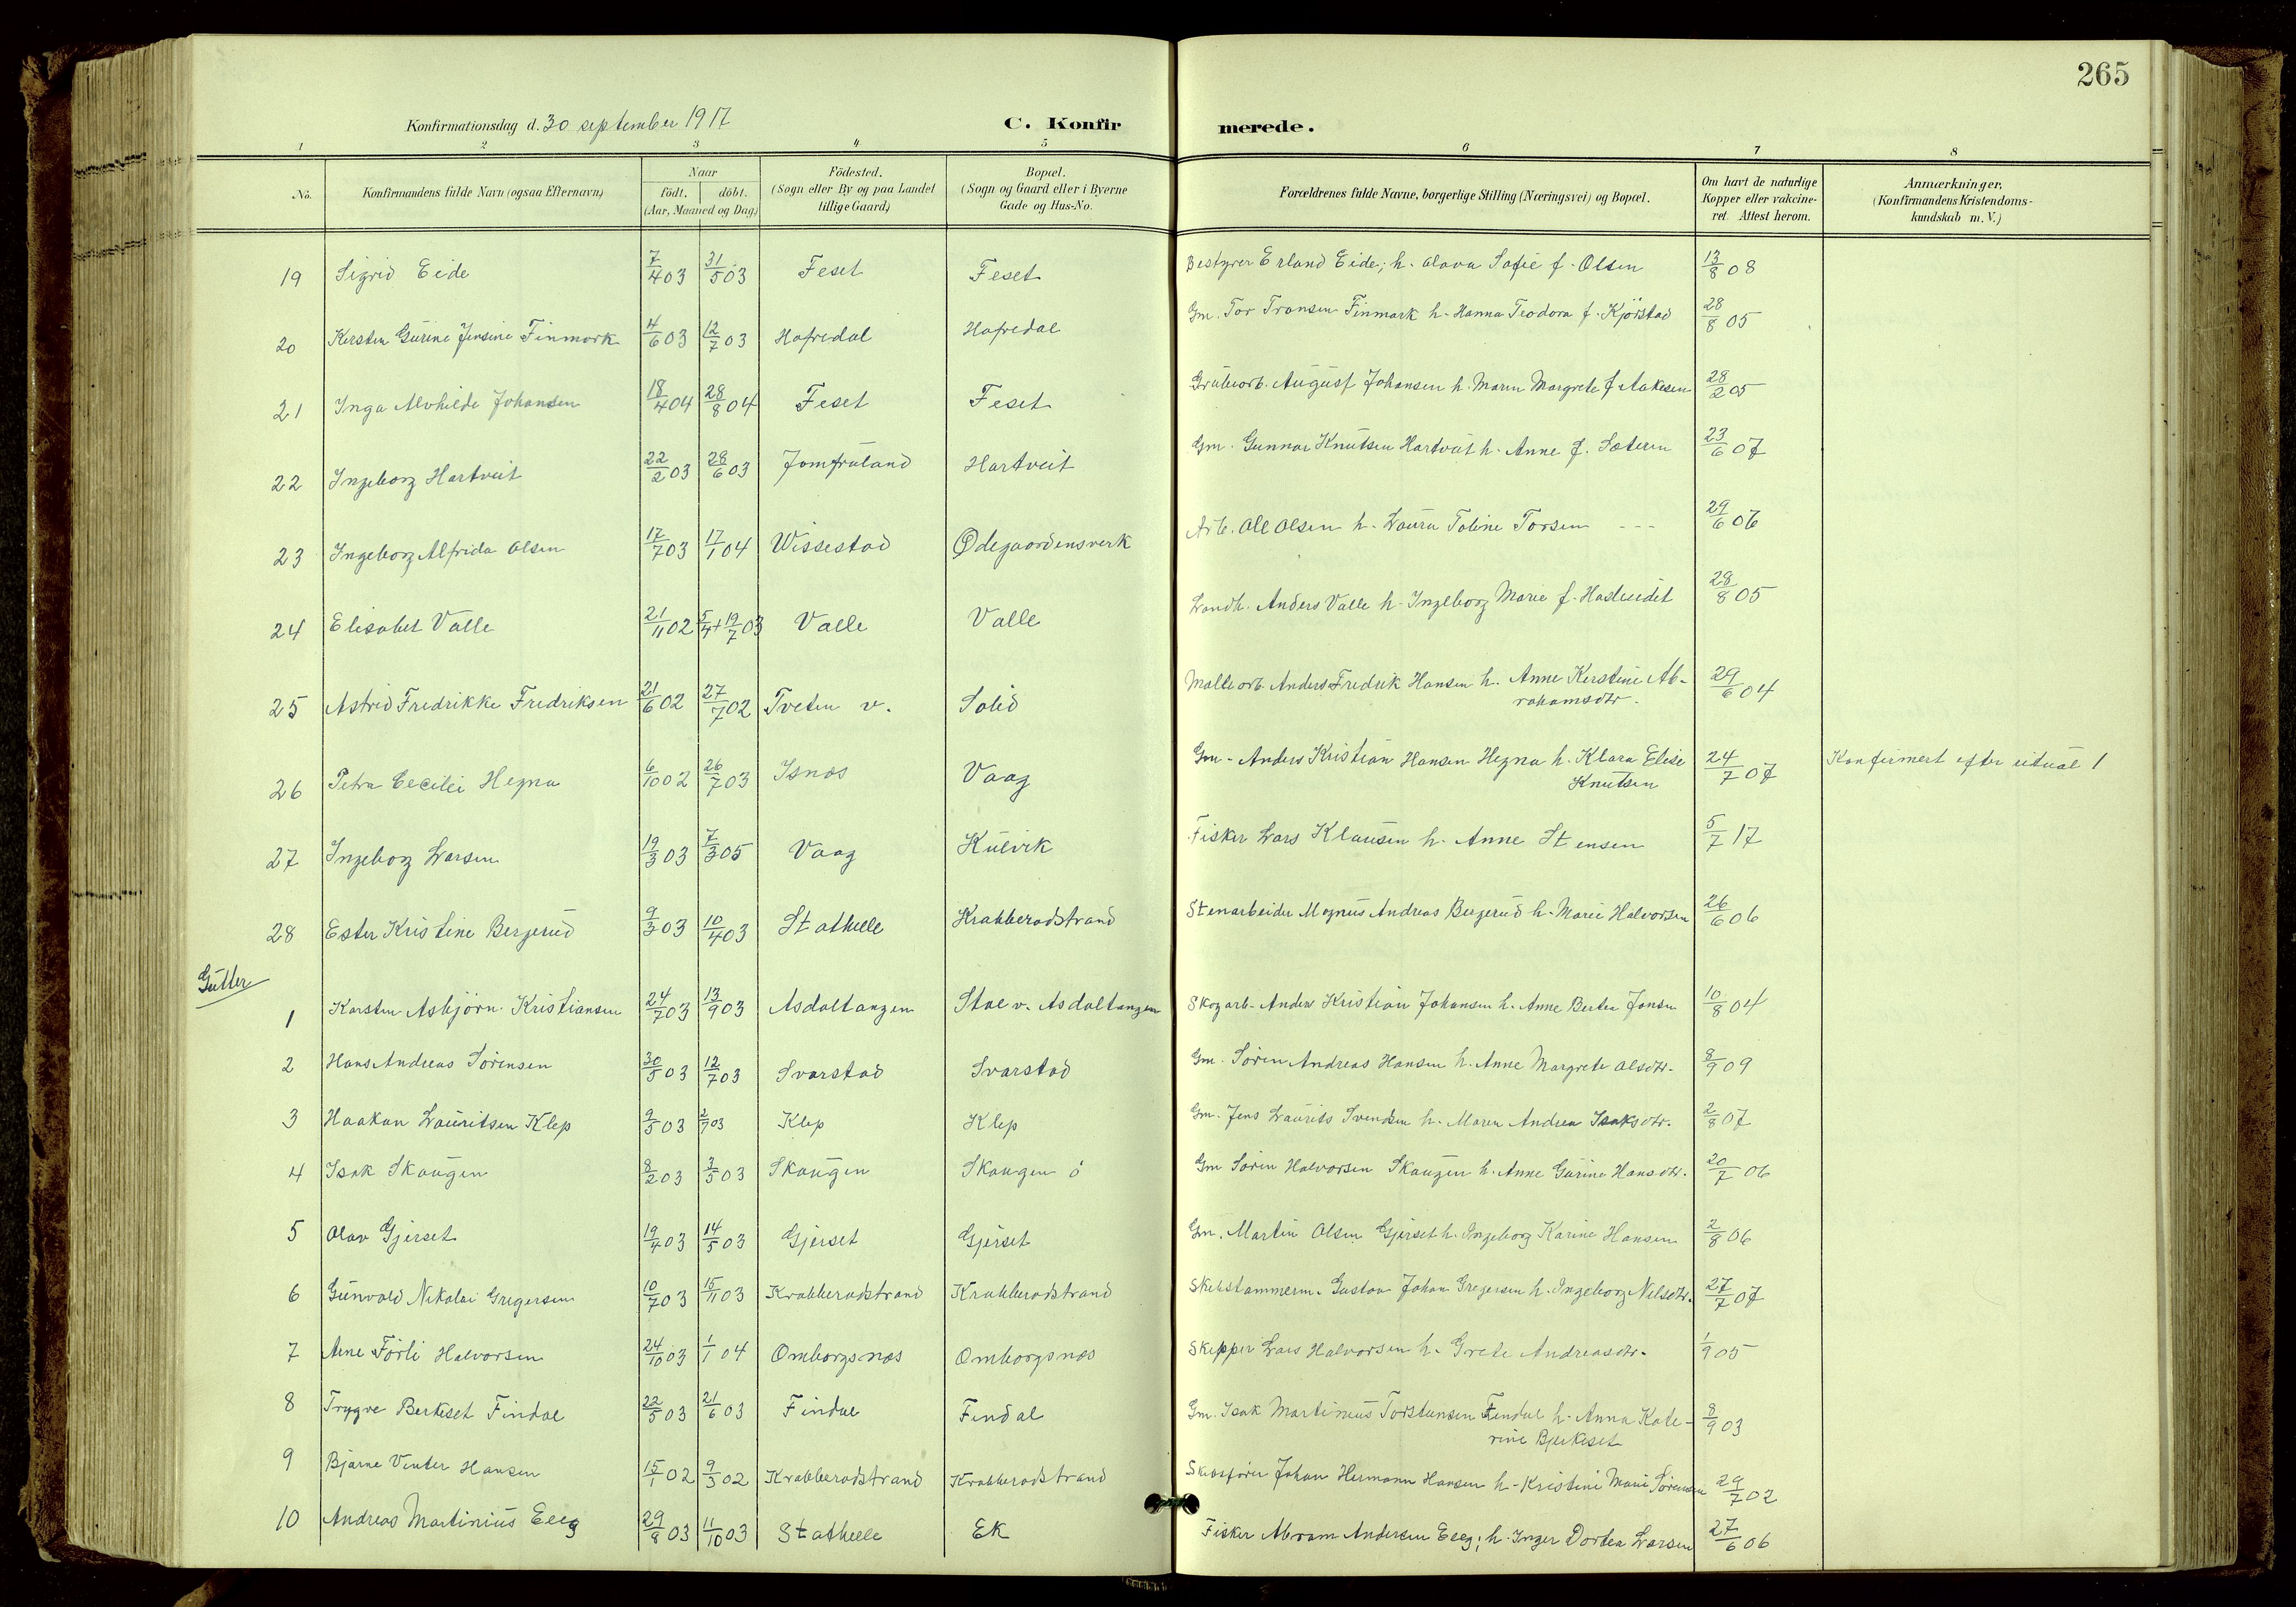 265
Konfirmationsdag d. 30 september 1917 C. Konfirmerede.
1 2 3 4 5 6 7 8
No. Konfirmandens fulde Navn (ogsaa Efternavn) Naar födt. döbt. (Aar, Maaned og Dag.) Födested. (Sogn eller By og paa Landet tillige Gaard.) Bopæl. (Sogn og Gaard eller i Byerne Gade og Hus-No. Forældrenes fulde Navne, borgerlige Stilling (Næringsvei) og Bopæl. Om havt de naturlige Kopper eller vakcineret. Attest herom. Anmærkninger. (Konfirmandens Kristendomskundskab m. V.)
19 Sigrid Eide 7/4 03 31/5 03 Feset Feset Bestyrer Erland Eide; h. Olava Sofie f. Olsen 13/8 08
20 Kirsten Gurine Jensine Finmark 4/6 03 12/7 03 Hafredal Hafredal Gm. Tor Transen Finmark h. Hanna Teodora f. Kjörstad 28/8 05
21 Inga Alvhilde Johansen 18/4 04 28/8 04 Feset Feset Grubearb. August Johansen h. Maren Margrete f Aakesen 28/2 05
22 Ingeborg Hartveit 22/2 03 28/6 03 Jomfruland Hartveit Gm. Gunnar Knutsen Hartveit h. Anne f. Sæteren 23/6 07
23 Ingeborg Alfrida Olsen 17/7 03 17/1 04 Wissestad Ødegaardensverk Arb. Ole Olsen h. Laura Tobine Torsen --- 29/6 06
24 Elisabet Valle 21/11 02 5/4+19/7 03 Valle Valle Landh. Anders Valle h. Ingeborg Marie f. 28/8 05
25 Astrid Fredrikke Fredriksen 21/6 02 27/7 02 Tveten v. Solid Mølle arb. Anders Fredrik Hansen h. Anne Kerstine Ab-
rahamsdtr. 29/6 04
26 Petra Cecilie Hegna 6/10 02 26/7 03 Isnæs Vaag Gm - Anders Kristian Hansen Hegna h. Klara Elise
Knutsen 24/7 07 Konfirmert efter ritual 1
27 Ingeborg Larsen 19/3 03 7/3 05 Vaag Kulvik Fisker Lars Klausen h. Anne Stensen 5/7 17
28 Ester Kristine Bergerud 9/3 03 10/4 03 Stathelle Krabberødstrand Stenarbeider Magnus Andreas Bergerud h. Marie Halvorsen 26/6 06
Gutter
1 Karsten Asbjörn Kristiansen 24/7 03 13/9 03 Asdaltangen Stoe v. Asdaltangen Skogarb. Anders Kristian Johansen h. Anne Bertea Jonsen 10/8 04
2 Hans Andreas Sörensen 30/5 03 12/7 03 Svarstad Svarstad Gm. Sören Andreas Hansen h. Anne Margrete Olsdtr. 8/9 09
3 Haakon Lauritsen Klep 9/5 03 2/7 03 Klep Klep Gm. Jens Laurits Svendsen h. Maren Andrea Isaksdtr. 2/8 07
4 Isak Skaugen 8/2 03 3/5 03 Skaugen Skaugen ö Gm Sören Halvorsen Skaugen h. Anne Gurine Hansdtr. 20/7 06
5 Olav Gjerset 19/4 03 14/5 03 Gjerset Gjerset Gm. Martin Olsen Gjerset h. Ingeborg Karine Hansen 2/8 06
6 Gunvald Nikolai Gregersen 10/7 03 15/11 03 Krabberødstrand Krabberødstrand Skibstømmerm. Gustav Johan Gregersen h. Ingeborg Nilsdtr. 27/7 07
7 Arne Förli Halvorsen 24/10 03 1/1 04 Omborgsnæs Omborgsnæs Skipper Lars Halvorsen h. Grete Andreasdtr. 1/9 05
8 Trygve Berkeset Findal 22/5 03 21/6 03 Findal Findal Gm. Isak Martinius Torstensen Findal h. Anna Kate-
rine Bjerkeset 8/9 03
9 Bjarne Vinter Hansen 15/1 02 9/3 02 Krabberødstrand Krabberødstrand Skibsförer Johan Hermann Hansen h. Kristine Marie Sörensen 29/7 02
10 Andreas Martinius Eeg 29/8 03 11/10 03 Stathelle Ek Fisker Abram Andersen Eeg; h. Inger Dortea Larsen 27/6 06